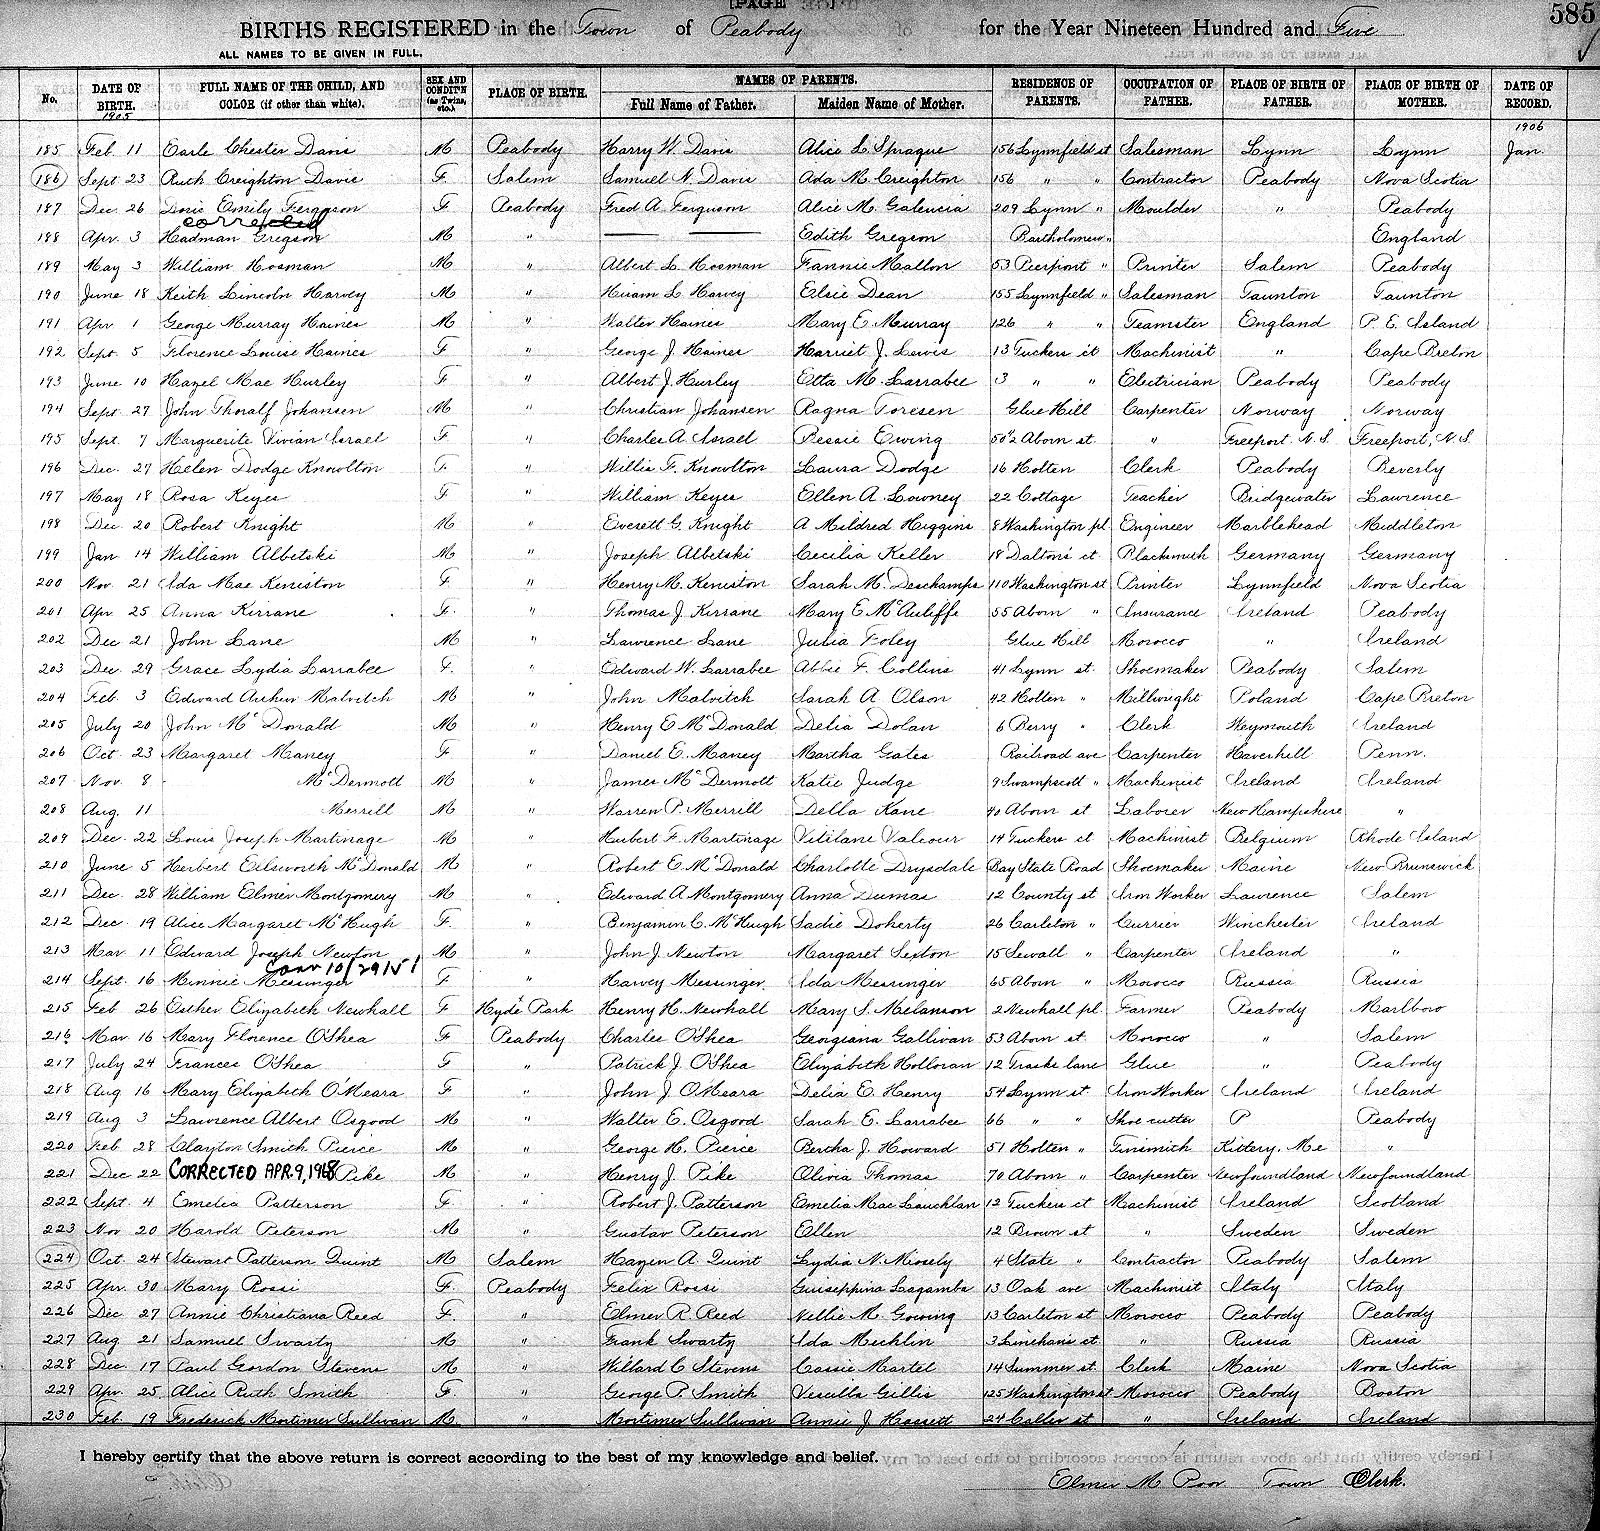 [PAGE ]
585
BIRTHS REGISTERED in the Town of Peabody for the Year Nineteen Hundred and Five
ALL NAMES TO BE GIVEN IN FULL.
No. DATE OF BIRTH. FULL NAME OF THE CHILD, AND COLOR (if other than white). SEX AND CONDIT'N (as Twins, etc.) PLACE OF BIRTH. NAMES OF PARENTS. Full Name of Father. Maiden Name of Mother. RESIDENCE OF PARENTS. OCCUPATION OF FATHER. PLACE OF BIRTH OF FATHER. PLACE OF BIRTH OF MOTHER. DATE OF RECORD.
1905 1906
185 Feb. 11 Earle Chester Davis M Peabody Harry W. Davis Alice L. Sprague 156 Lynnfield st Salesman Lynn Lynn Jan.
186 Sept 23 Ruth Creighton Davis F. Salem Samuel N. Davis Ada M. Creighton 156 " " Contractor Peabody Nova Scotia
187 Dec. 26 Doris Emily Ferguson F Peabody Fred A. Ferguson Alice M. Galencia 209 Lynn " Moulder " Peabody
corrected
188 Apr. 3 Hadman Gregson M " Edith Gregson Bartholomew " England
189 May 3 William Hosman M " Albert L. Hosman Fannie Mallon 53 Pierpont " Printer Salem Peabody
190 June 18 Keith Lincoln Harvey M " Hiram L. Harvey Elsie Dean 155 Lynnfield " Salesman Taunton Taunton
191 Apr. 1 George Murray Haines M " Walter Haines Mary E. Murray 126 " " Teamster England P. E. Island
192 Sept. 5 Florence Louise Haines F " George J. Haines Harriet J. Lewis 13 Tuckers ct Machinist " Cape Breton
193 June 10 Hazel Mae Hurley F " Albert J. Hurley Etta M. Larrabee 3 " " Electrician Peabody Peabody
194 Sept. 27 John Thoralf Johansen M " Christian Johansen Ragna Toresen Glue Hill Carpenter Norway Norway
195 Sept. 7 Marguerite Vivian Israel F. " Charles A. Israel Bessie Ewing 50½ Aborn st. " Freeport. N.S. Freeport, N.S.
196 Dec. 27 Helen Dodge Knowlton F. " Willis F. Knowlton Laura Dodge 16 Holten Clerk Peabody Beverly
197 May 18 Rosa Keyes F. " William Keyes Ellen A. Lowney 22 Cottage Teacher Bridgewater Lawrence
198 Dec. 20 Robert Knight M. " Everett G. Knight A Mildred Higgins 8 Washington pl. Engineer Marblehead Middleton
199 Jan 14 William Albetski M " Joseph Albetski Cecilia Keller 18 Daltons ct Blacksmith Germany Germany
200 Nov. 21 Ida Mae Keniston F. " Henry M. Keniston Sarah M. Deschamps 110 Washington st Printer Lynnfield Nova Scotia
201 Apr. 25 Anna Kerrane F. " Thomas J. Kerrane Mary E. McAuliffe 55 Aborn " Insurance Ireland Peabody
202 Dec 21 John Lane M " Lawrence Lane Julia Foley Glue Hill Morocco " Ireland
203 Dec. 29 Grace Lydia Larrabee F. " Edward W. Larrabee Abbie F. Collins 41 Lynn st. Shoemaker Peabody Salem
204 Feb. 3 Edward Arthur Malvitch M " John Malvitch Sarah A. Olson 42 Holten " Millwright Poland Cape Breton
205 July 20 John McDonald M " Henry E McDonald Delia Dolan 6 Berry " Clerk Weymouth Ireland
206 Oct. 23 Margaret Maney F " Daniel E. Maney Martha Gates Railroad ave Carpenter Haverhill Penn.
207 Nov. 8 McDermott M " James McDermott Katie Judge 9 Swampscott " Machinist Ireland Ireland
208 Aug. 11 Merrill M " Warren P. Merrill Della Kane 40 Aborn st Laborer New Hampshire "
209 Dec. 22 Louis Joseph Martinage M " Hubert F. Martinage Vitilane Valcour 14 Tuckers ct Machinist Belgium Rhode Island
210 June 5 Herbert Ellsworth McDonald M " Robert E. McDonald Charlotte Drysdale Bay State Road Shoemaker Maine New Brunswick
211 Dec. 28 William Elmer Montgomery M " Edward A Montgomery Anna Dumas 12 County st Iron Worker Lawrence Salem
212 Dec. 19 Alice Margaret McHugh F. " Benjamin C. McHugh Sadie Doherty 26 Carleton " Currier Winchester Ireland
213 Mar. 11 Edward Joseph Newton M " John J. Newton Margaret Sexton 15 Sewall " Carpenter Ireland "
Corr 10/29/51
214 Sept. 16 Minnie Messinger F " Harvey Messinger Ida Messinger 65 Aborn " Morocco Russia Russia
215 Feb 26 Esther Elizabeth Newhall F Hyde Park Henry H. Newhall Mary S. Melanson 2 Newhall pl. Farmer Peabody Marlboro
216 Mar. 16 Mary Florence O'Shea F Peabody Charles O'Shea Georgiana Gallivan 53 Aborn st. Morocco " Salem
217 July 24 Frances O'Shea F " Patrick J. O'Shea Elizabeth Holloran 12 Trasks lane Glue " Peabody
218 Aug 16 Mary Elizabeth O'Meara F " John J. O'Meara Delia E. Henry 54 Lynn st Iron Worker Ireland Ireland
219 Aug 3 Lawrence Albert Osgood M " Walter E. Osgood Sarah E. Larrabee 66 " " Shoe cutter P Peabody
220 Feb 28 Clayton Smith Pierce M " George H. Pierce Bertha J. Howard 51 Holten " Tinsmith Kittery, Me "
221 Dec 22 CORRECTED APR. 9, 1968 Pike M " Henry J. Pike Olivia Thomas 70 Aborn " Carpenter Newfoundland Newfoundland
222 Sept. 4 Emelia Patterson F. " Robert J. Patterson Emelia MacLauchlan 12 Tuckers ct Machinist Ireland Scotland
223 Nov 20 Harold Peterson M " Gustav Peterson Ellen 12 Brown st " Sweden Sweden
224 Oct. 24 Stewart Patterson Quint M Salem Hazen A. Quint Lydia N. Nisely 4 State " Contractor Peabody Salem
225 Apr. 30 Mary Rossi F. Peabody Felix Rossi Guiseppina Lagamba 13 Oak ave Machinist Italy Italy
226 Dec 27 Annie Christiana Reed F. " Elmer R. Reed Nellie M. Gowing 13 Carleton st Morocco Peabody Peabody
227 Aug 21 Samuel Swartz M " Frank Swartz Ida Michlin 3 Linehans ct. " Russia Russia
228 Dec. 17 Paul Gordon Stevens M " Willard C Stevens Cassie Martel 14 Summer st. Clerk Maine Nova Scotia
229 Apr. 25 Alice Ruth Smith F. " George P. Smith Vescilla Gillis 125 Washington st Morocco Peabody Boston
230 Feb 19 Frederick Mortimer Sullivan M. " Mortimer Sullivan Annie J Hassett 24 Caller st " Ireland Ireland
I hereby certify that the above return is correct according to the best of my knowledge and belief.
Elmer M Poor Town Clerk.